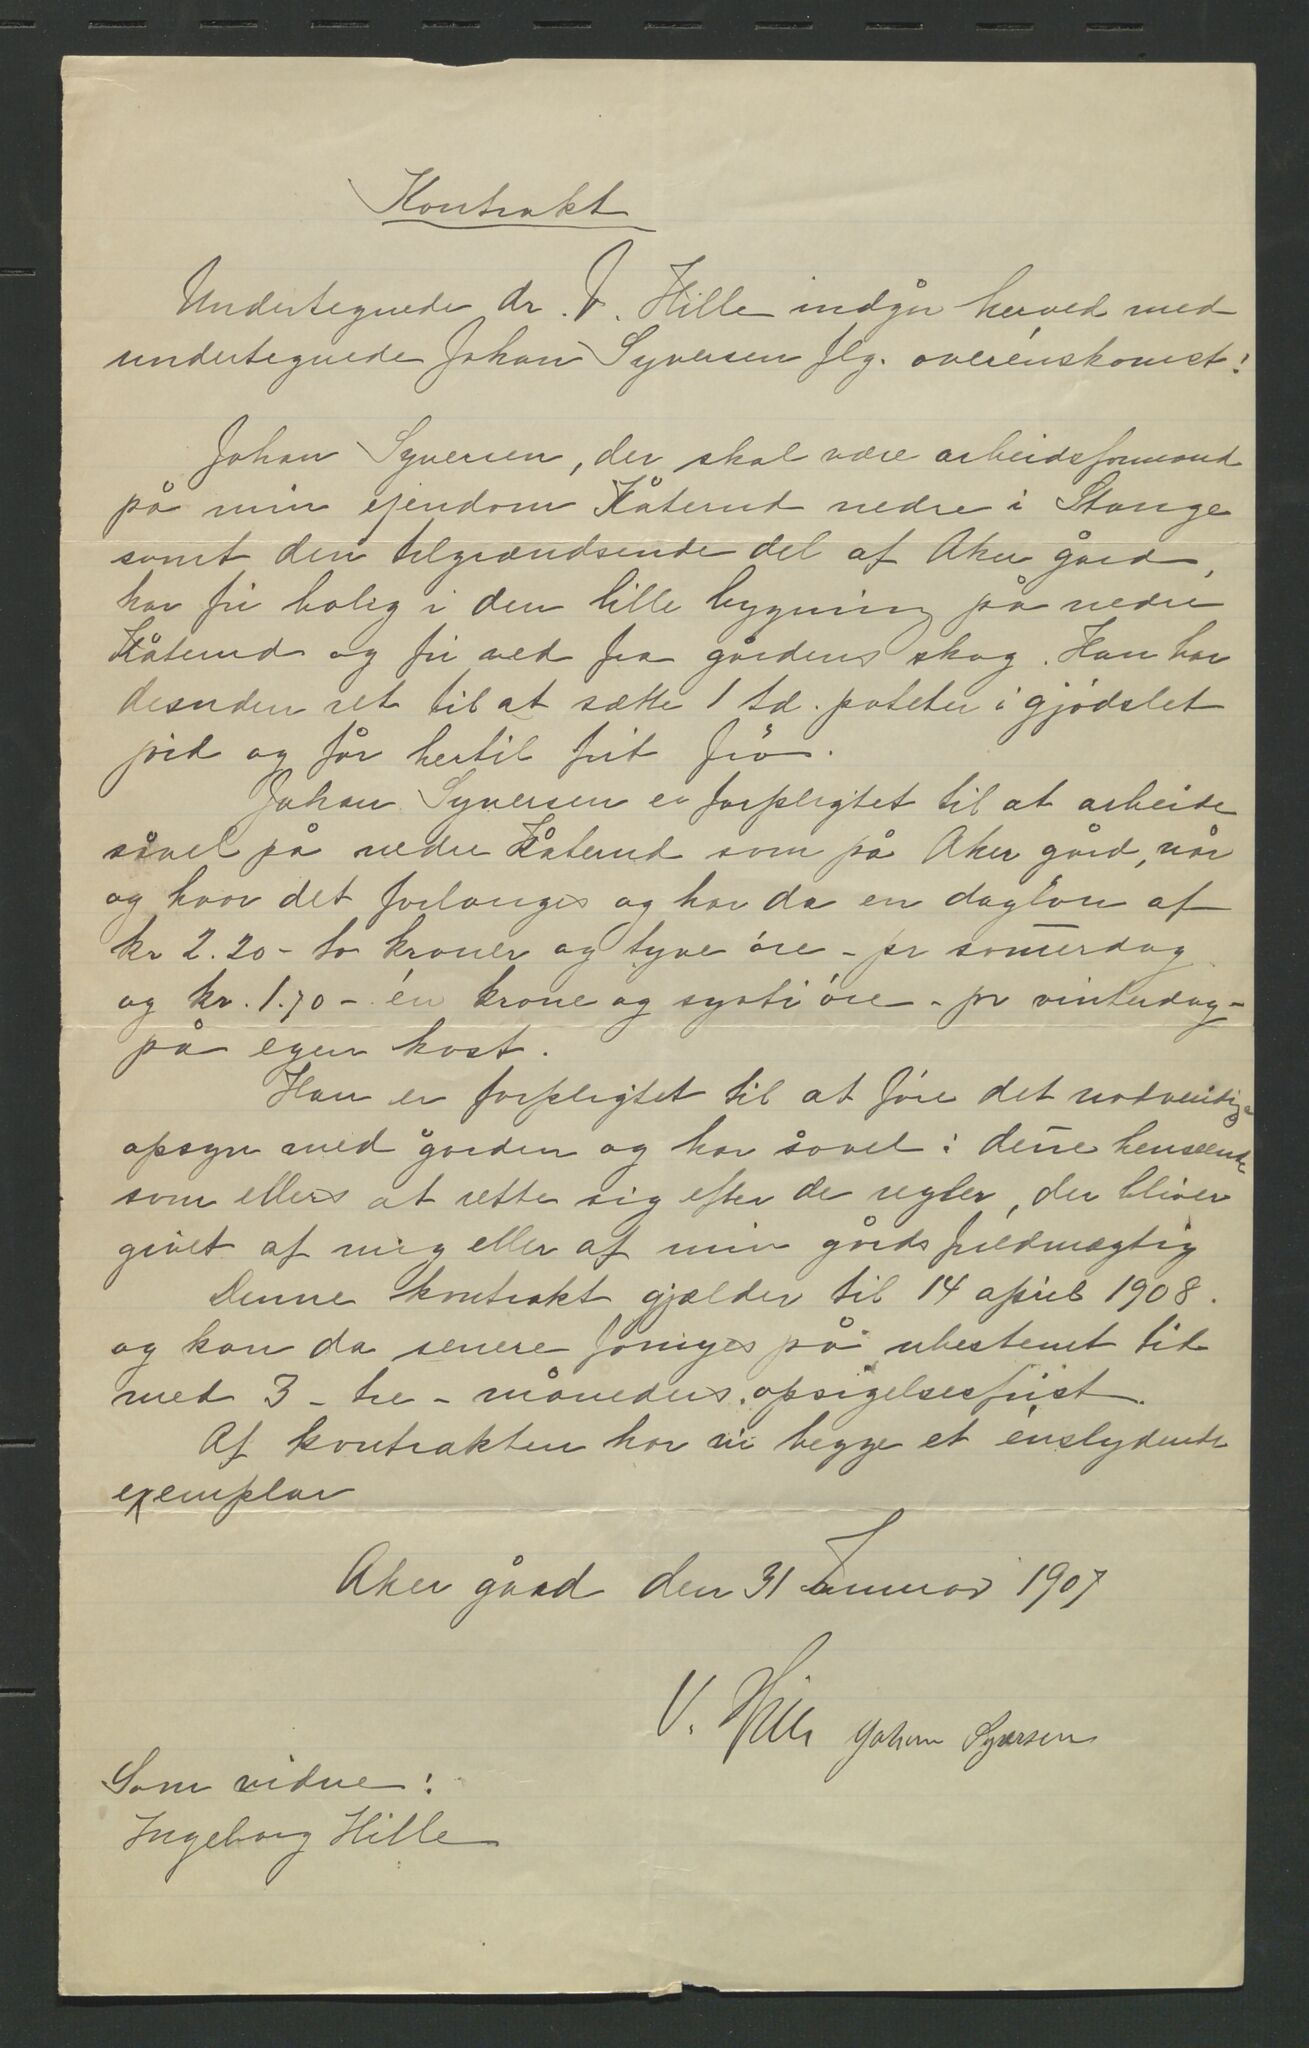 Kontrakt
Undertegnede dr. V. Hille indgår herved med
undertegnede Johan Syversen flg. overénskomst:
Johan Syversen, der skal være arbeidsformand
på min ejendom Kåterud nedre i Stange
samt den tilgrændsende del af Aker gård,
har fri bolig i den lille bygning på nedre
Kåterud og fri ved fra gårdens skog. Han har
desuden ret til at sætte 1 td. poteter i gjödslet
jord og får hertil frit frö.
Johan Syversen er forpligtet til at arbeide
såvel på nedre Kåterud som på Aker gård, når
og hvor det forlanges og har da en daglön af
kr 2.20 - to kroner og tyve öre - pr somerdag
og kr. 1.70 - én krone og sytti öre - pr vinterdag -
på egen kost.
Han er forpligtet til at före det nödvendige
opsyn med gården og har såvel i dene henseende
som ellers at rette sig efter de regler, der bliver
givet af mig eller af min gårdsfuldmægtig
Denne kontrakt gjælder til 14 april 1908.
og kan da senere fornyes på ubestemt tid
med 3 - tre - måneders opsigelsesfrist.
Af kontrakten har vi begge et énslydende
exemplar
Aker gård den 31 Januar 1907
V. Hille Johan Syversen
Som vidne:
Ingeborg Hille